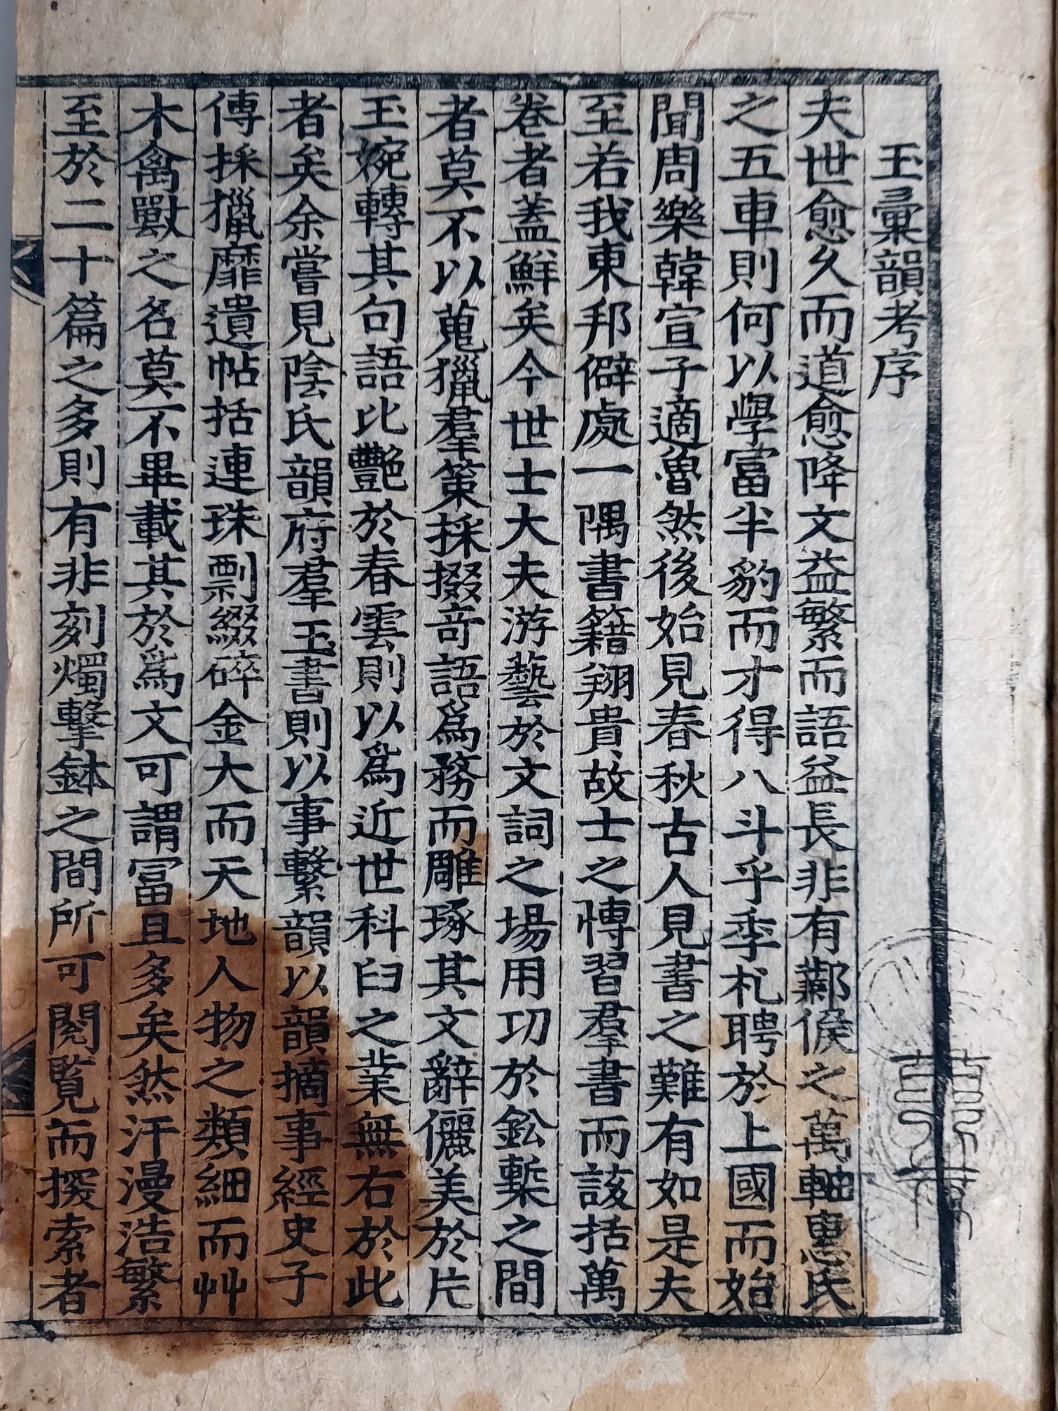 玉彙韻考序
夫世愈久而道愈降文益繁而語益長非有鄴侯之萬軸惠氏
之五車則何以學富半豹而才得八斗乎季札聘於上國而始
聞周樂韓宣子適魯然後始見春秋古人見書之難有如是夫
至若我東邦僻處一隅書籍翔貴故士之慱習羣書而該括萬
卷者蓋鮮矣今世士大夫游藝於文詞之場用功於鈆槧之間
者莫不以蒐獵羣策採掇奇語爲務而雕琢其文辭儷美於片
玉婉轉其句語比艷於春雲則以爲近世科臼之業無右於此
者矣余嘗見陰氏韻府羣玉書則以事繫韻以韻摘事經史子
傳採獵靡遺帖括連珠剽綴碎金大而天地人物之類細而艸
木禽獸之名莫不畢載其於爲文可謂富且多矣然汗漫浩繁
至於二十篇之多則有非刻燭擊鉢之間所可閱覧而揬索者